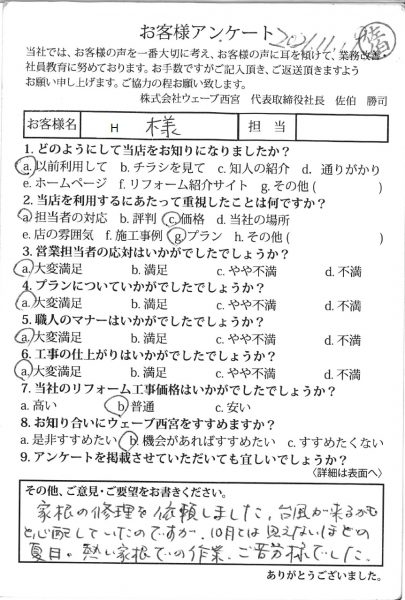 お客様アンケート 2021.11.1
当社では、お客様の声を一番大切に考え、お客様の声に耳を傾けて、業務改善・
社員教育に努めております。お手数ですがご記入頂き、ご返送頂きますよう
お願い申し上げます。ご協力の程お願い致します。
株式会社ウェーブ西宮 代表取締役社長 佐伯 勝司
お客様名 H 様 担当
1. どのようにして当店をお知りになりましたか？
a. 以前利用して b. チラシを見て c. 知人の紹介 d. 通りがかり
e. ホームページ f. リフォーム紹介サイト g. その他( )
2. 当店を利用するにあたって重視したことは何ですか？
a. 担当者の対応 b. 評判 c. 価格 d. 当社の場所
e. 店の雰囲気 f. 施工事例 g. プラン h. その他( )
3. 営業担当者の応対はいかがでしたでしょうか？
a. 大変満足 b. 満足 c. やや不満 d. 不満
4. プランについていかがでしたでしょうか？
a. 大変満足 b. 満足 c. やや不満 d. 不満
5. 職人のマナーはいかがでしたでしょうか？
a. 大変満足 b. 満足 c. やや不満 d. 不満
6. 工事の仕上がりはいかがでしたでしょうか？
a. 大変満足 b. 満足 c. やや不満 d. 不満
7. 当社のリフォーム工事価格はいかがでしたでしょうか？
a. 高い b. 普通 c. 安い
8. お知り合いにウェーブ西宮をすすめますか？
a. 是非すすめたい b. 機会があればすすめたい c. すすめたくない
9. アンケートを掲載させていただいても宜しいでしょうか？
〈詳細は表面へ〉
その他、ご意見・ご要望をお書きください。
家根の修理を依頼しました。台風が来るかも
と心配していたのですが、10月とは思えないほどの
夏日。熱い家根での作業、ご苦労様でした。
ありがとうございました。